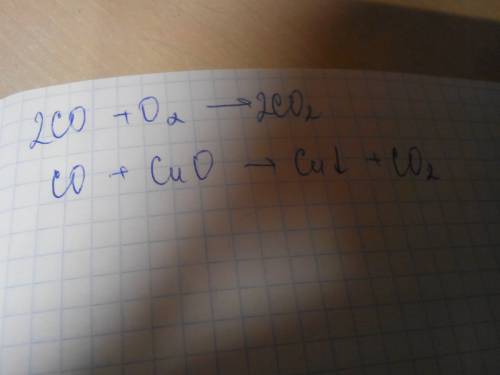 2CO + O₂ → 2CO₂
CO + CuO → Cu↓ + CO₂